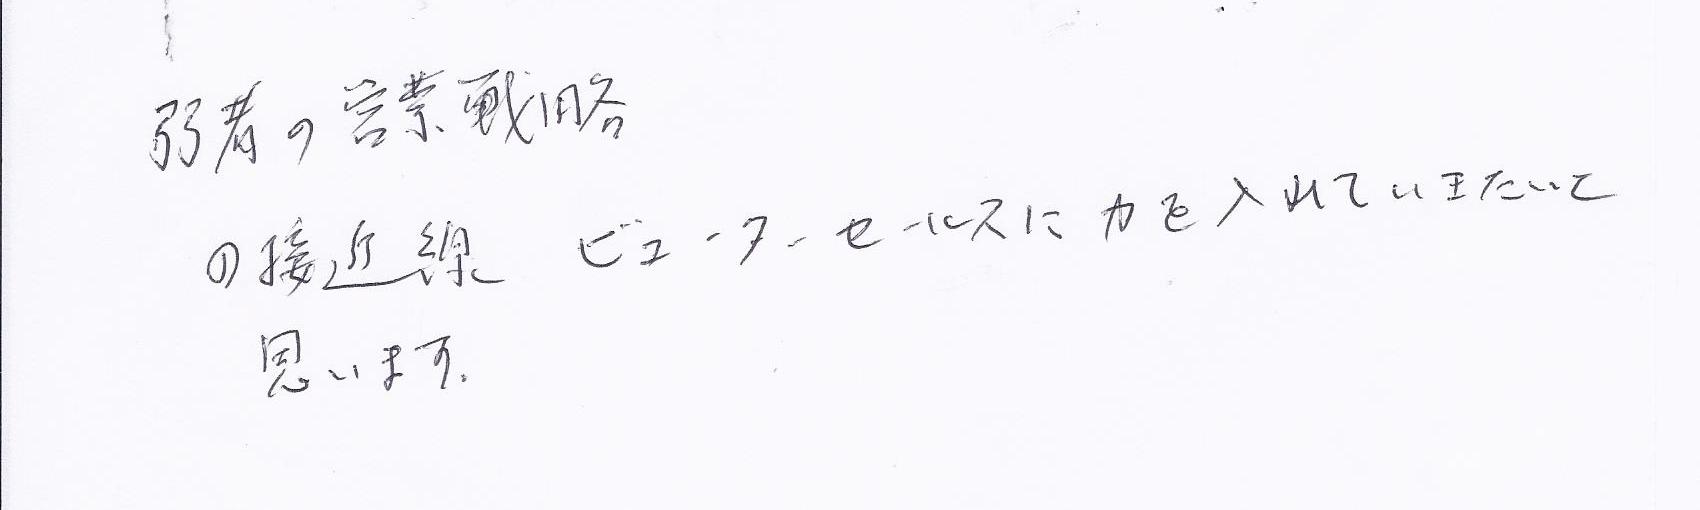 弱者の営業戦略
の接近線 ビューターセールスに力を入れていきたいと
思います。